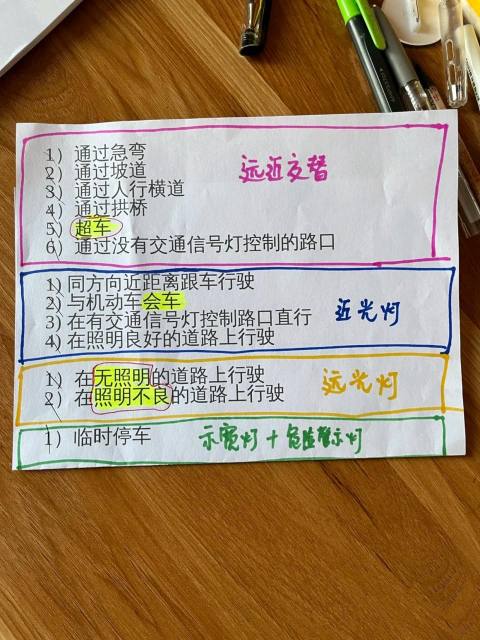 1) 通过急弯
2) 通过坡道
3) 通过人行横道
4) 通过拱桥
5) 超车
6) 通过没有交通信号灯控制的路口
远近交替
1) 同方向近距离跟车行驶
2) 与机动车会车
3) 在有交通信号灯控制路口直行
4) 在照明良好的道路上行驶
近光灯
1) 在无照明的道路上行驶
2) 在照明不良的道路上行驶
远光灯
1) 临时停车
示宽灯 + 危险警示灯